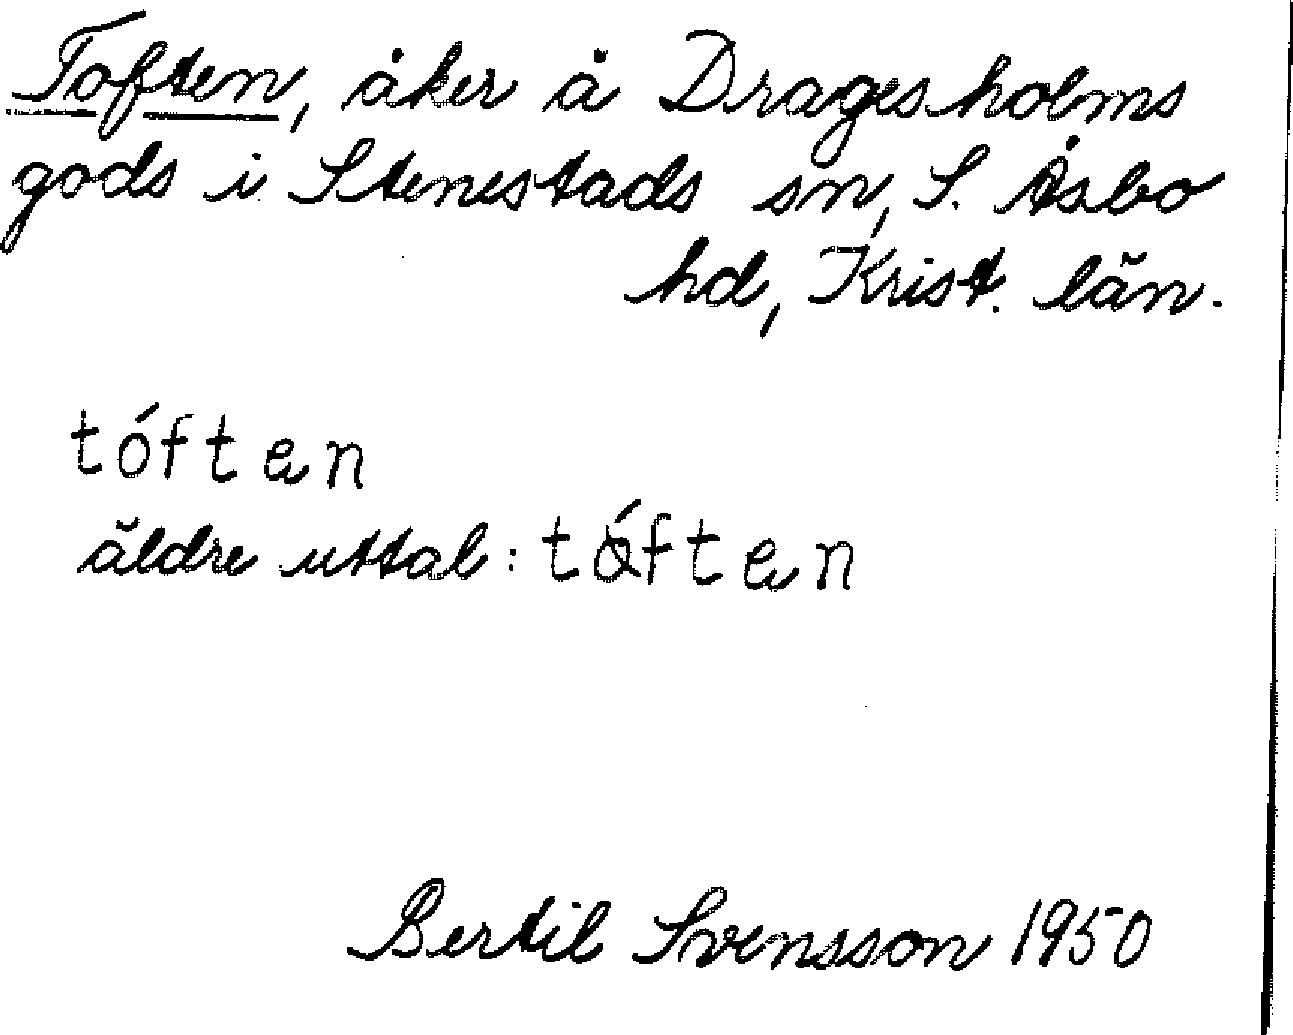 Toften, åker å Dragesholms
gods i Stenestads sn, S. Åsbo
hd, Krist. län.
tóften
äldre uttal: tǿften
Bertil Svensson 1950